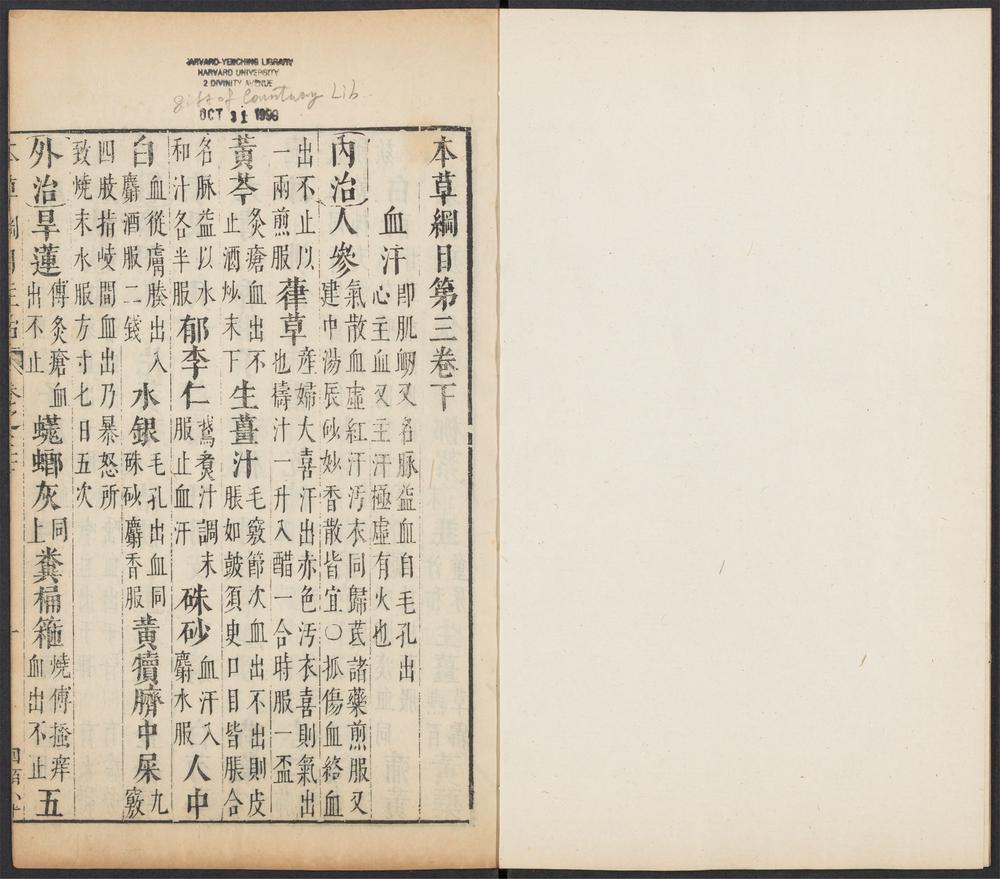 HARVARD-YENCHING LIBRARY
HARVARD UNIVERSITY
2 DIVINITY AVENUE
gift of Countway Lib.
OCT 31 1998
本草綱目第三卷下
血汗 即肌衂又名脉益血自毛孔出心主血又主汗極虛有火也
內治 人參 氣散血虛紅汗污衣同歸芪諸藥煎服又建中湯辰砂妙香散皆宜○抓傷血絡血
出不止以一兩煎服 葎草 產婦大喜汗出赤色污衣喜則氣出也擣汁一升入醋一合時服一盃
黃芩 灸瘡血出不止酒炒末下 生薑汁 毛竅節次血出不出則皮脹如皷須臾口目皆脹合
名脉益以水和汁各半服 郁李仁 鵞煑汁調末服止血汗 硃砂 血汗入麝水服 人中
白 血從膚腠出入麝酒服二錢 水銀 毛孔出血同硃砂麝香服 黃犢臍中屎 九竅
四肢指歧間血出乃暴怒所致燒末水服方寸匕日五次
外治 旱蓮 傅灸瘡血出不止 蜣螂灰 同上 糞桶箍 燒傅搔痒血出不止 五